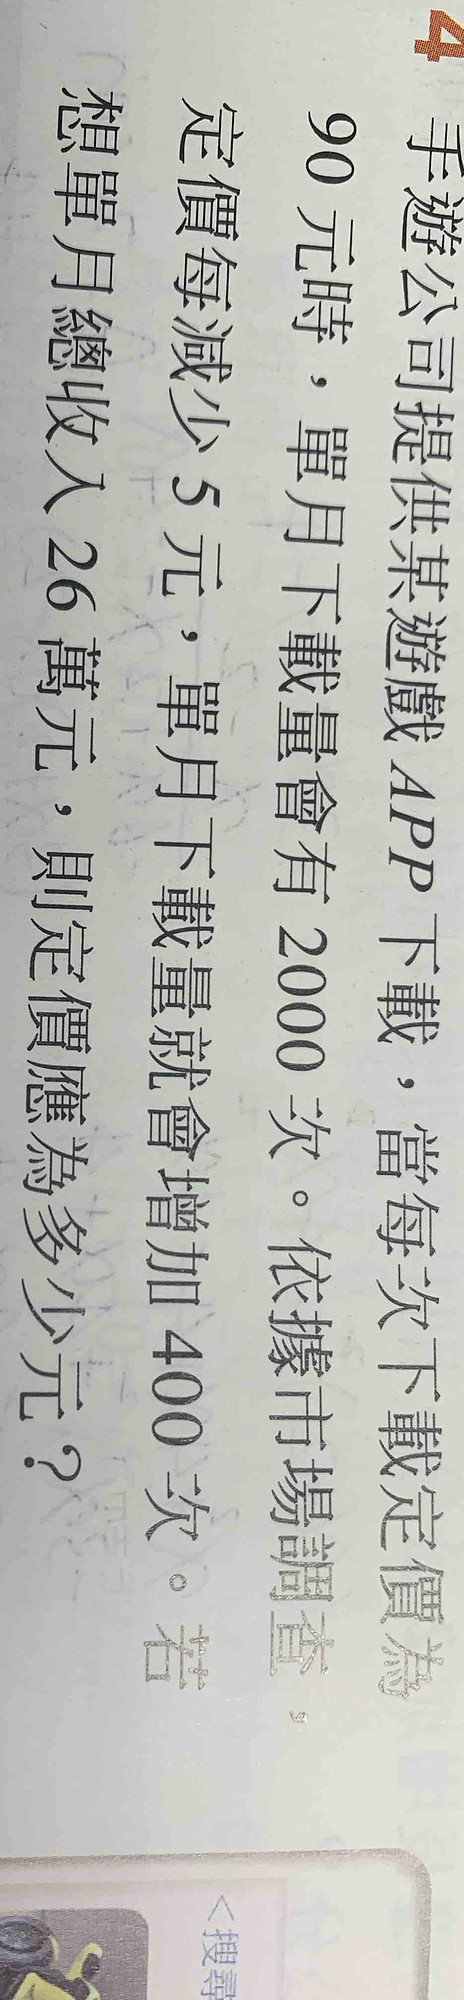 4
手遊公司提供某遊戲APP下載，當每次下載定價為
90元時，單月下載量會有2000次。依據市場調查，
定價每減少5元，單月下載量就會增加400次。若
想單月總收入26萬元，則定價應為多少元？
<搜尋